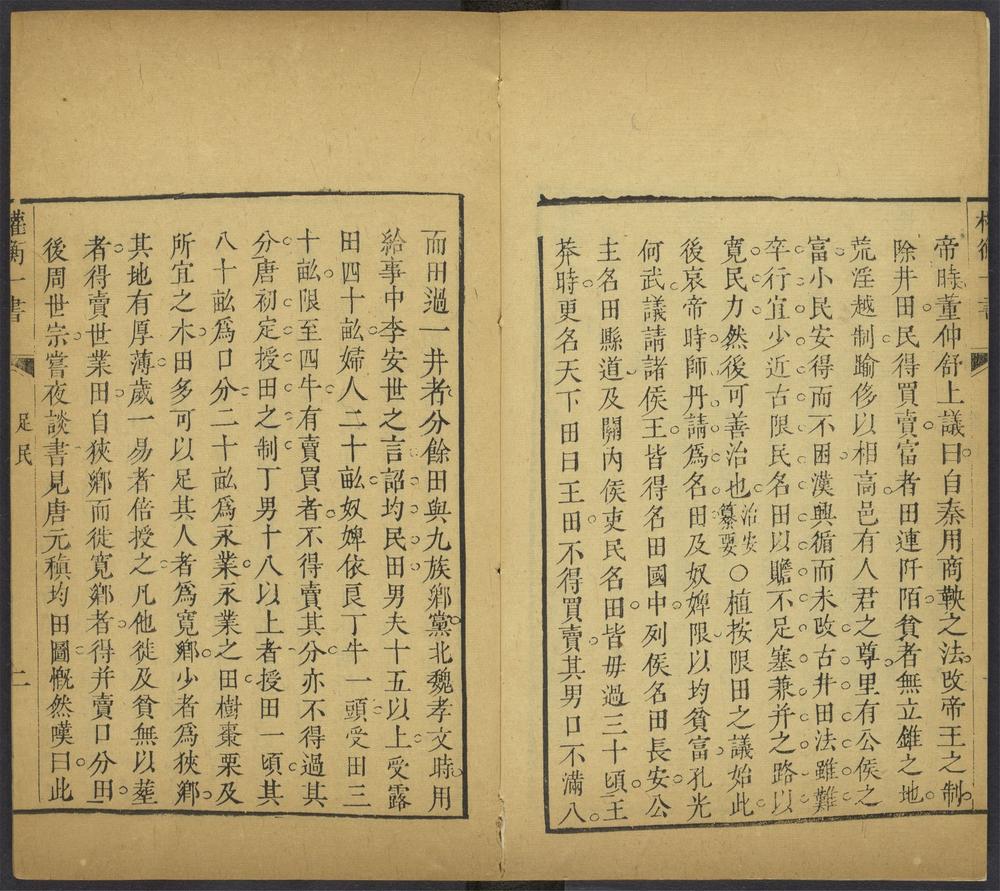 帝時董仲舒上議曰自秦用商鞅之法改帝王之制
除井田民得買賣富者田連阡陌貧者無立錐之地
荒淫越制踰侈以相高邑有人君之尊里有公侯之
富小民安得而不困漢興循而未改古井田法雖難
卒行宜少近古限民名田以贍不足塞兼并之路以
寬民力然後可善治也治安纂要○植按限田之議始此
後哀帝時師丹請爲名田及奴婢限以均貧富孔光
何武議請諸侯王皆得名田國中列侯名田長安公
主名田縣道及關內侯吏民名田皆毋過三十頃王
莽時更名天下田曰王田不得買賣其男口不滿八
而田過一井者分餘田與九族鄉黨北魏孝文時用
給事中李安世之言詔均民田男夫十五以上受露
田四十畝婦人二十畝奴婢依良丁牛一頭受田三
十畝限至四牛有賣買者不得賣其分亦不得過其
分唐初定授田之制丁男十八以上者授田一頃其
八十畝爲口分二十畝爲永業永業之田樹棗栗及
所宜之木田多可以足其人者爲寬鄉少者爲狹鄉
其地有厚薄歲一易者倍授之凡他徙及貧無以葬
者得賣世業田自狹鄉而徙寬鄉者得并賣口分田
後周世宗嘗夜談書見唐元稹均田圖慨然嘆曰此
權衡一書
足民
二